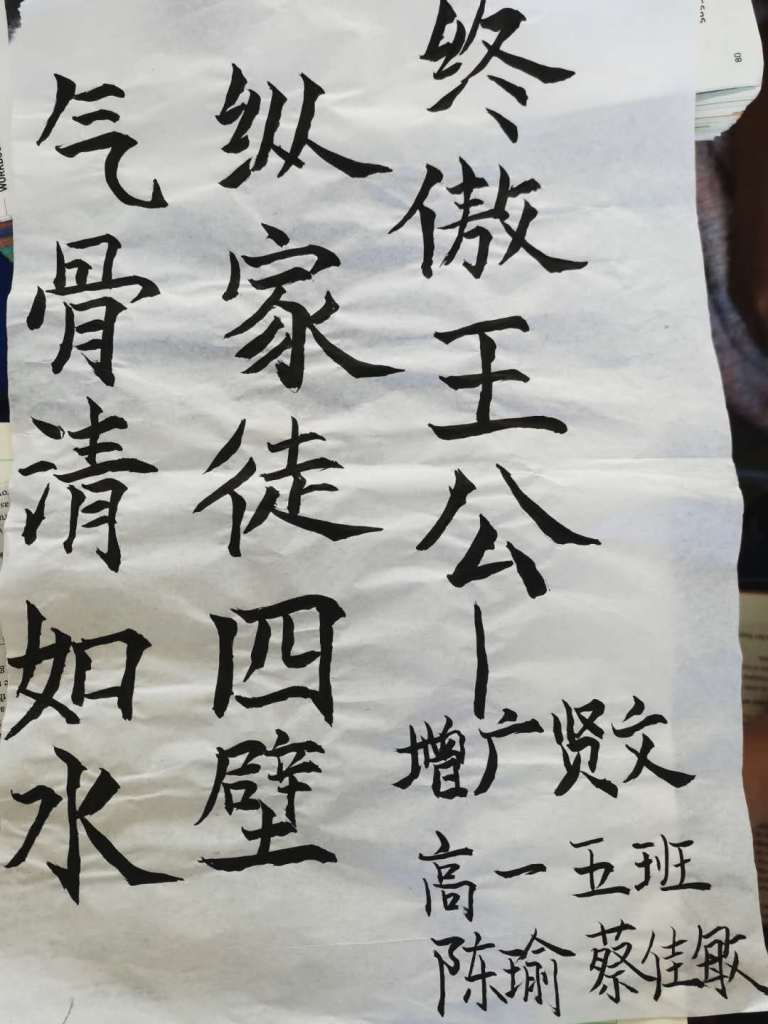 气骨清如水
纵家徒四壁
终傲王公—
增广贤文
高一五班
陈瑜 蔡佳敏